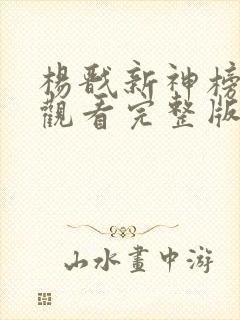 楊戩新神榜
觀看完整版
山水畫中游